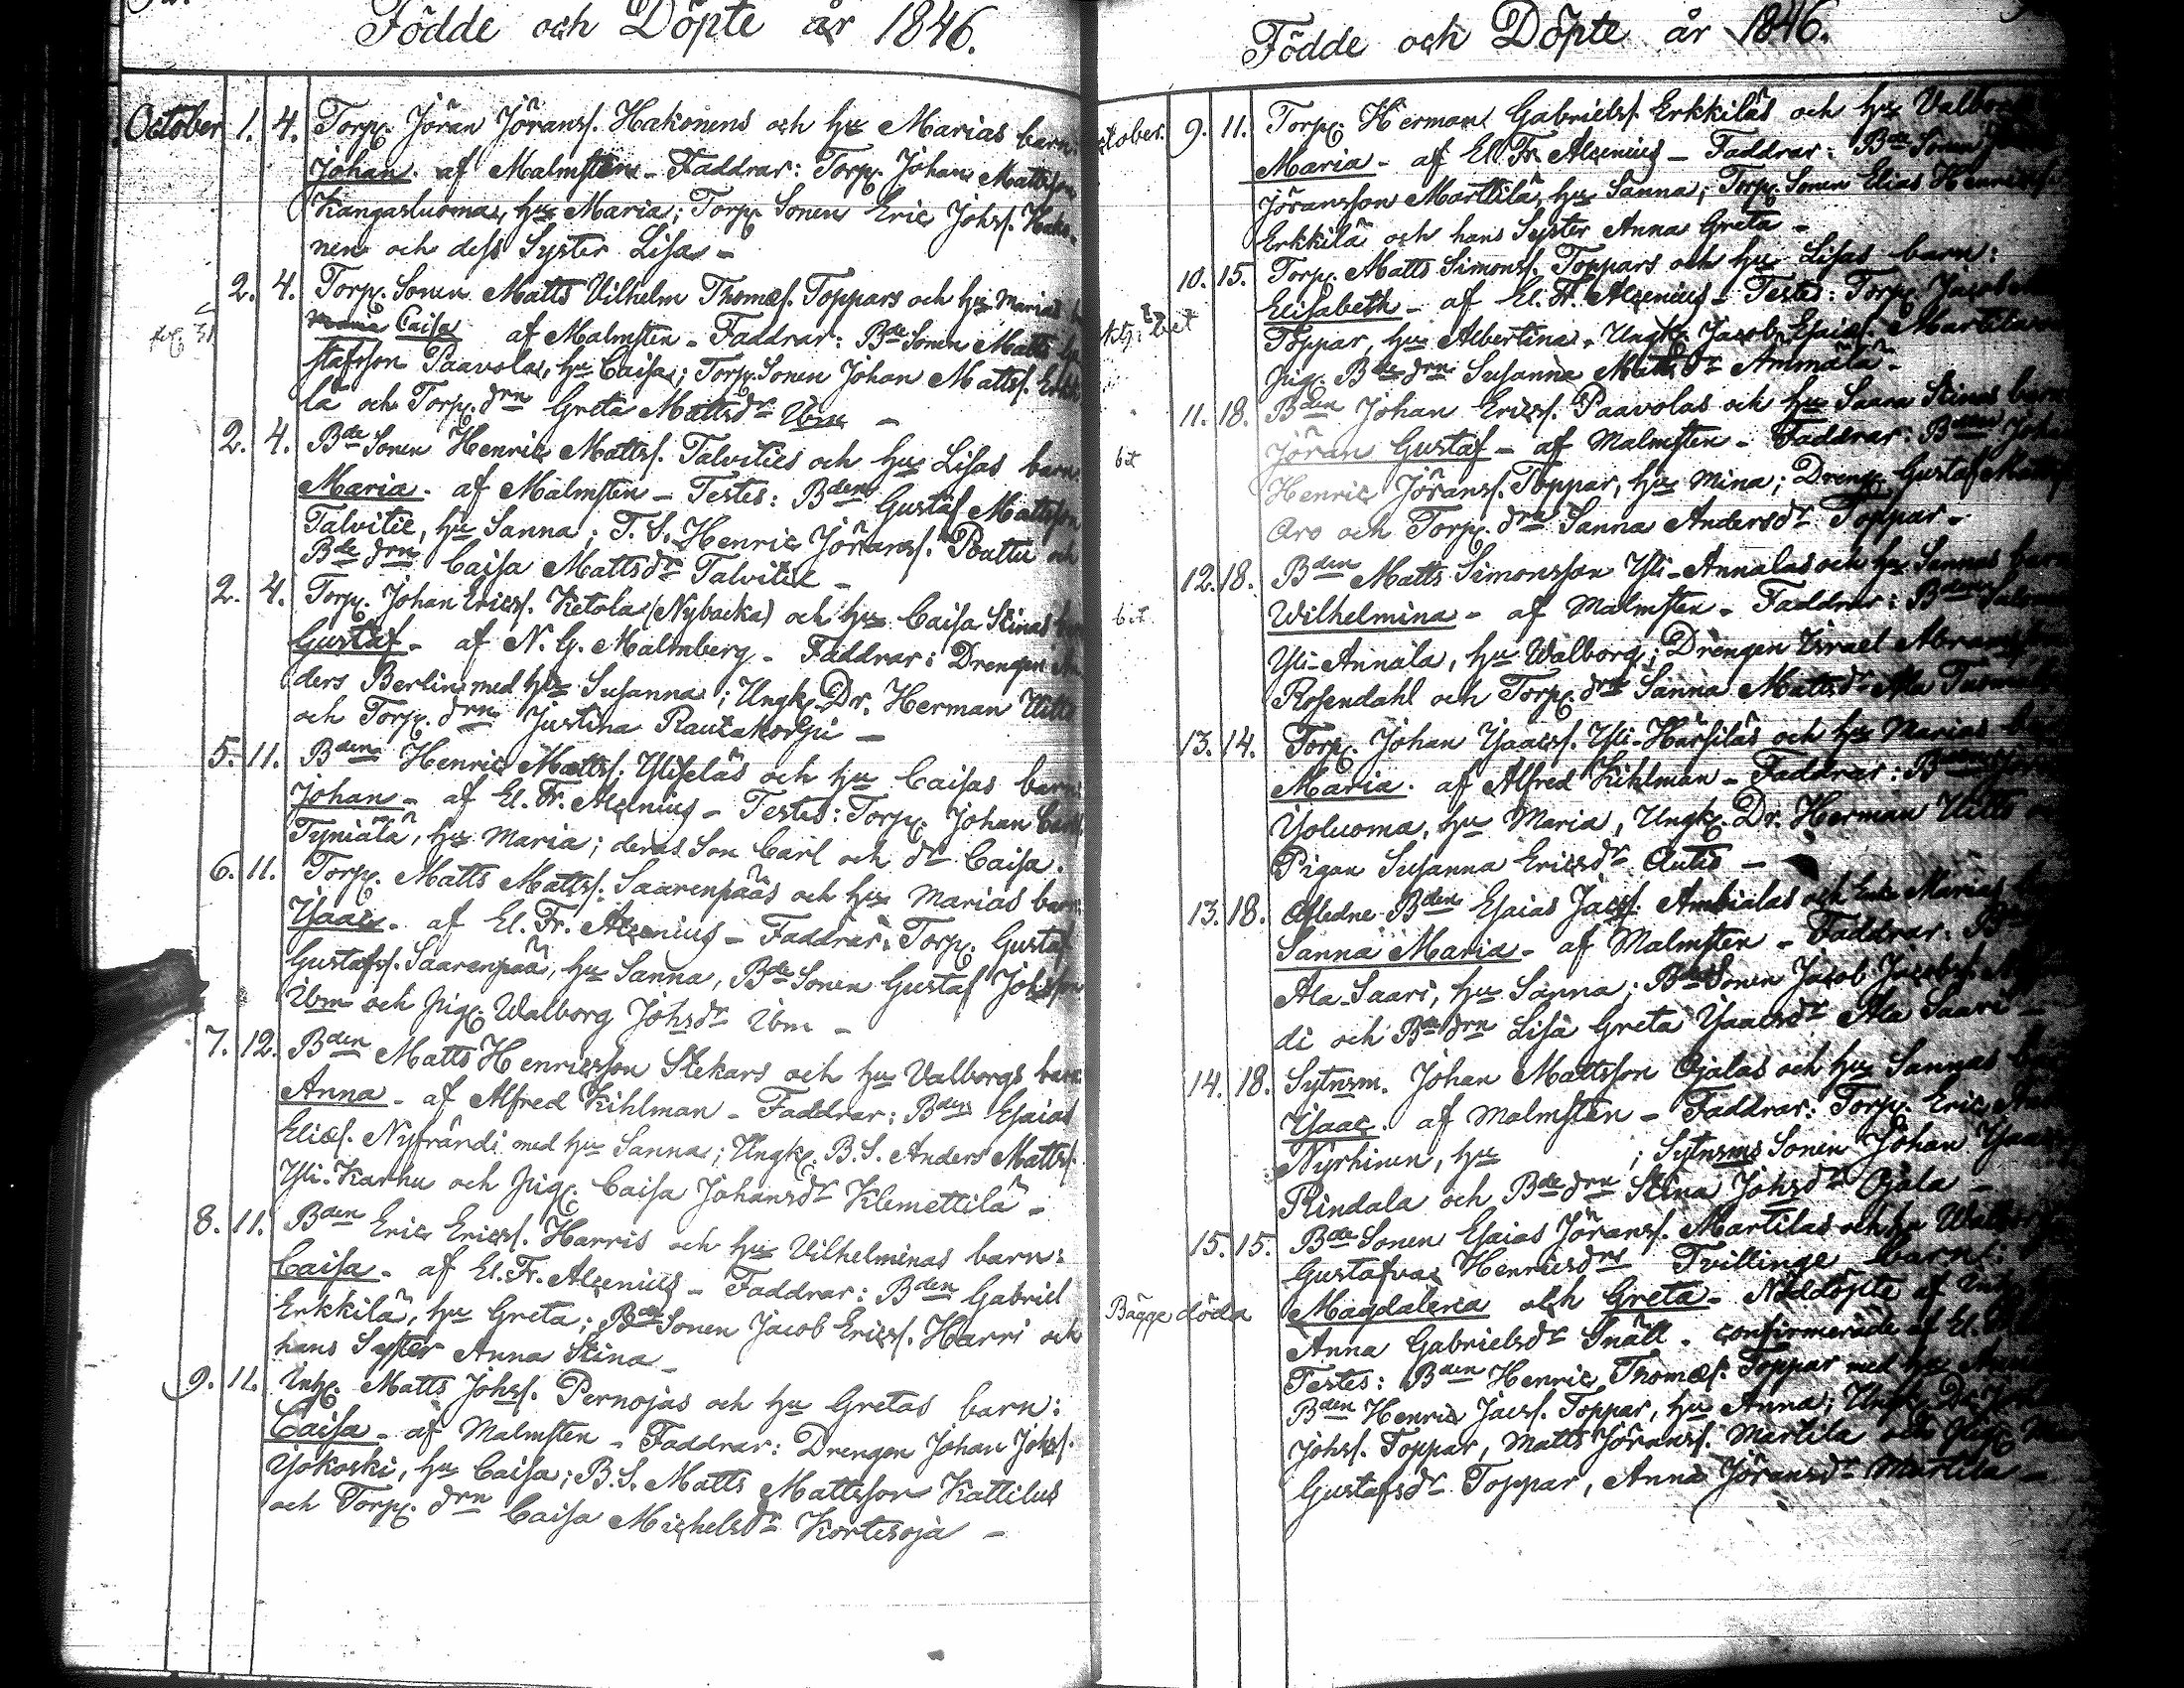 Födde och Döpte år 1846.
October 1. 4. Torp. Jöran Jöranss. Hakonens och hu Marias barn:
Johan. af Malmsten - Faddrar: Torp. Johan Mattsson
Kangasluoma, hu Maria; Torp. Sonen Eric Johss. Hako-
nen och dess Syster Lisa -
2. 4. Torp. Sonen Matts Vilhelm Thomæs. Toppars och hu Marias
Caisa af Malmsten - Faddrar: Bde Sonen Matts Gu
stafsson Paavola, hu Caisa; Torp. Sonen Johan Mattss. Erkki
lä och Torp. drn Greta Mattsdr Ibm -
2. 4. Bde Sonen Henric Mattss. Talvities och hu Lisas barn
Maria. af Malmsten - Testes: Bden Gustaf Mattsson
Talvitie, hu Sanna; T. S. Henric Jöranss. Pouttu och
Bde drn Caisa Mattsdr Talvitie -
2. 4. Torp. Johan Ericss. Ketola (Nybacka) och hu Caisa Stinas
Gustaf - af N. G. Malmberg - Faddrar: Drengen An
ders Berlin med hu Susanna; Ungk. Dr. Herman Uitto
och Torp. drn Justina Rautakorpi -
5. 11. Bden Henric Mattss. Yliseläs och hu Caisas barn
Johan - af El. Fr. Alcenius - Testes: Torp. Johan Carlss
Tyniälä, hu Maria; deras Son Carl och dr Caisa.
6. 11. Torp. Matts Mattss. Saarenpääs och hu Marias barn
Ysaac. af El. Fr. Alcenius - Faddrar: Torp. Gustaf
Gustafss. Saarenpää, hu Sanna, Bde Sonen Gustaf Johsson
Ibm och pig. Walborg Johsdr Ibm -
7. 12. Bden Matts Henricsson Slekars och hu Valborgs barn
Anna - af Alfred Kihlman - Faddrar: Bden Esaias
Eliæs. Nyfrändi med hu Sanna; Ungk. B. S. Anders Mattss.
Yli-Karhu och pig. Caisa Johansdr Klemettilä -
8. 11. Bden Eric Ericss. Harris och hu Vilhelminas barn:
Caisa - af El. Fr. Alcenius - Faddrar: Bden Gabriel
Erkkilä, hu Greta; Bde Sonen Jacob Ericss. Harri och
hans Syster Anna Stina -
9. 11. Inh. Matts Johss. Pernojas och hu Gretas barn:
Caisa - af Malmsten - Faddrar: Drengen Johan Johss.
Yokoski, hu Caisa; B. S. Matts Mattsson Kattilus
och Torp. drn Caisa Michelsdr Kortesoja -
Födde och Döpte år 1846.
ctober. 9. 11. Torp. Herman Gabrielss. Erkkiläs och hu Valborgs
Maria - af El. Fr. Alcenius - Faddrar: Bde Sonen
Jöransson Marttila, hu Sanna; Torp. Sonen Elias Henricss
Erkkilä och hans Syster Anna Greta -
10. 15. Torp. Matts Simonss. Toppars och hu Lisas barn:
Elisabeth - af El. Fr. Alcenius - Testes: Torp. Jacob
Toppar, hu Albertina, Ungk. Jacob Esaiæs. Martila
Pig. Bde drn Susanna Mattsdr Ammälä -
11. 18. Bden Johan Ericss. Paavolas och hu Saara Stinas barn
Jöran Gustaf - af Malmsten - Faddrar: Bden Johan
Henric Jöranss. Toppar, hu Mina; Dreng. Gustaf Mattss
Aro och Torp. drn Sanna Andersdr Toppar -
12. 18. Bden Matts Simonsson Yli-Annalas och hu Sannas barn
Wilhelmina - af Malmsten - Faddrar: Bden
Yli-Annala, hu Walborg; Drengen Israel Abrams
Rosendahl och Torp. drn Sanna Mattsdr Ala
13. 14. Torp. Johan Ysacss. Yli-Härsiläs och hu Marias
Maria. af Alfred Kihlman - Faddrar: Bden
Yoluoma, hu Maria, Ungk. Dr. Herman Uitto
Pigan Susanna Ericsdr Autio -
13. 18. Afledne Bden Esaias Jacss. Ambialas och Enk Marias
Sanna Maria - af Malmsten - Faddrar:
Ala-Saari, hu Sanna; Bde Sonen Jacob Jacobss.
di och Bde drn Lisa Greta Ysacsdr Ala Saari
14. 18. Sytnsm. Johan Mattsson Ojalas och hu Sannas
Ysaac. af Malmsten - Faddrar: Torp. Eric
Nyrhinen, hu ; Sytnsms Sonen Johan
Rindala och Bde drn Stina Johsdr Ojala -
15. 15. Bde Sonen Esaias Jöranss. Martilas och hu Walb
Gustafva Henricsdrs Tvillinge barn:
Bägge döda Magdalena och Greta - Nöddöpte af
Anna Gabrielsdr Snäll - confirmerade af El.
Testes: Bden Henric Thomæs. Toppar med hu Anna
Bden Henric Jacss. Toppar, hu Anna; Ungk. Dr.
Johss. Toppar, Matts Jöranss. Martila och Pig.
Gustafsdr Toppar, Anna Jöransdr Martila -